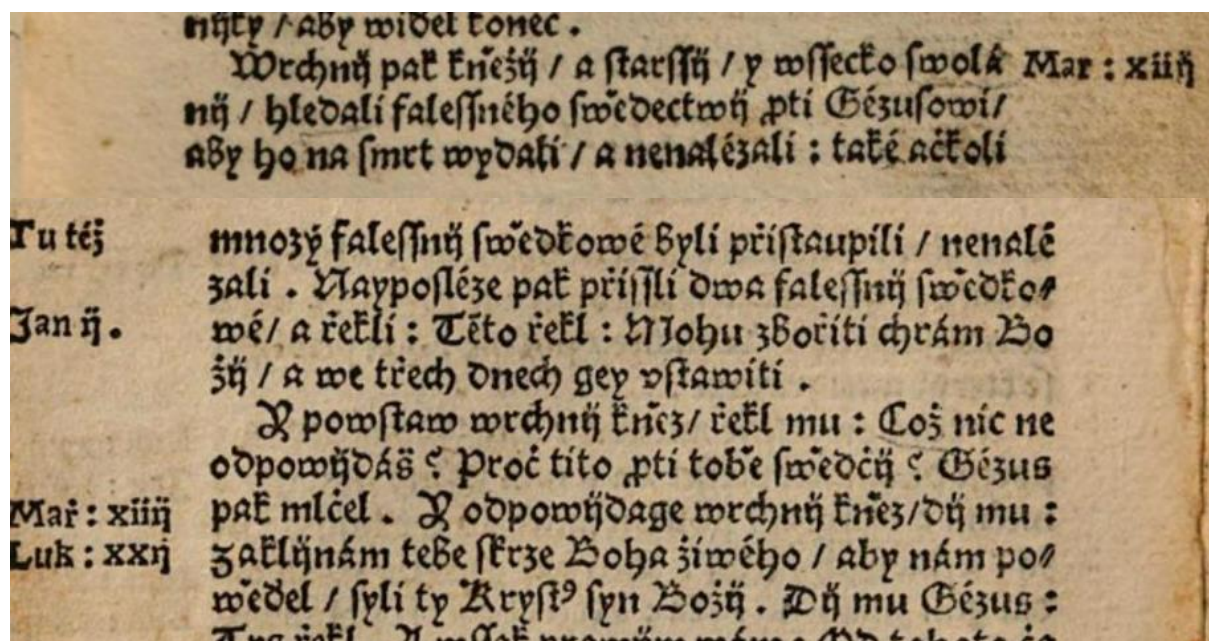 nijky / aby widěl konec .
Wrchnij pak kněžij / a starssij / y wssecko swolá Mar : xiiij
nij / hledali falessného swědectwij ꝓti Gézusowi/
aby ho na smrt wydali / a nenalézali : také ačkoli
Tu též mnozý falessnij swědkowé byli přistaupili / nenalé
zali . Nayposléze pak přissli dwa falessnij swědko⸗
Jan ij . wé/ a řekli : Této řekl : Mohu zbořiti chrám Bo
žij / a we třech dnech gey vstawiti .
Y powstaw wrchnij kněz/ řekl mu : Což nic ne
odpowijdáš ? Proč tito ꝓti tobě swědčij ? Gézus
Mař : xiiij pak mlčel . Y odpowijdage wrchnij kněz/dij mu :
Luk : xxij zaklijnám tebe skrze Boha žiwého / aby nám po⸗
wěděl / syli ty Krystꝰ syn Božij . Dij mu Gézus :